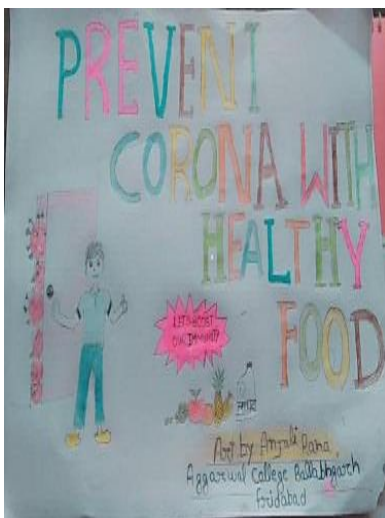 PREVENT
CORONA WITH
HEALTHY
FOOD
LET'S BOOST
OUR IMMUNITY
Art by Anjali Rana
Aggarwal College Ballabhgarh
Fridabad